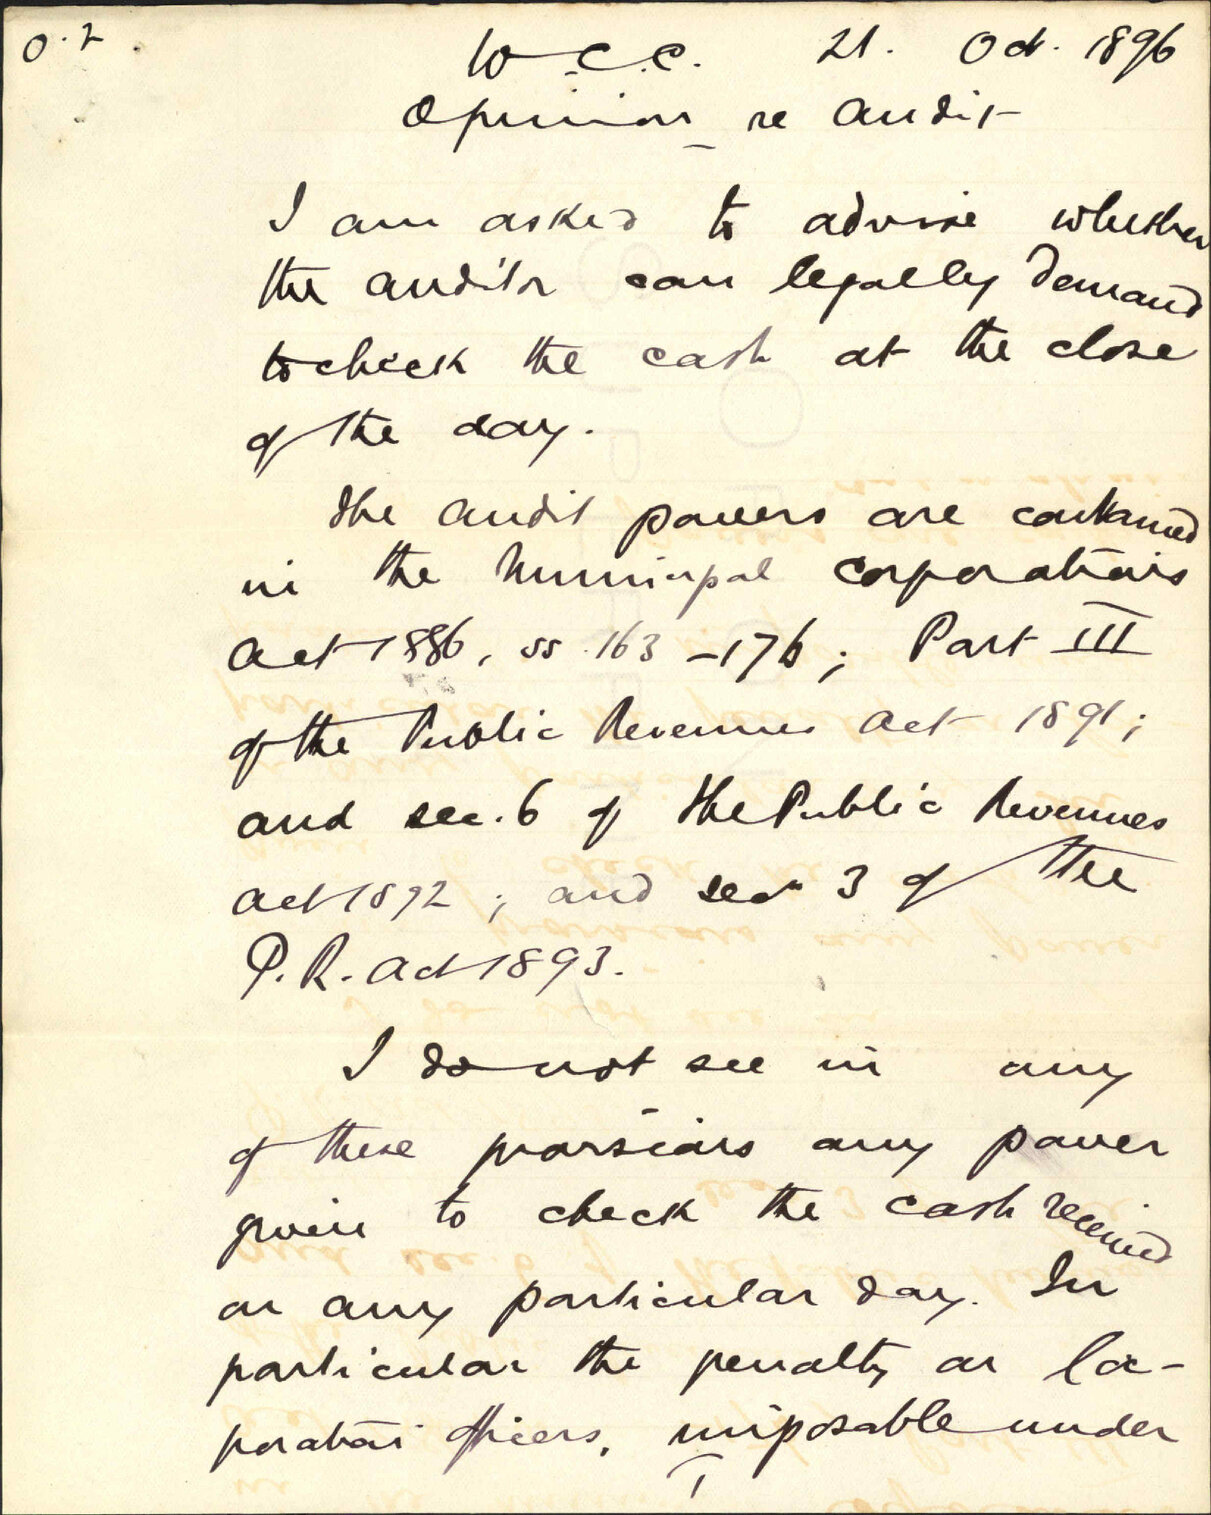 O.2
W.C.C. 21. Oct. 1896
Opinion re Audit
I am asked to advise whether
the auditor can legally demand
to check the cash at the close
of the day.
The audit powers are contained
in the Municipal Corporations
Act 1886, ss. 163-176; Part III
of the Public Revenues Act 1891;
and sec. 6 of the Public Revenues
Act 1892; and sec 3 of the
P.R. Act 1893.
I do not see in any
of these provisions any power
given to check the cash received
on any particular day. In
particular the penalty on Cor-
poration officers, imposable under